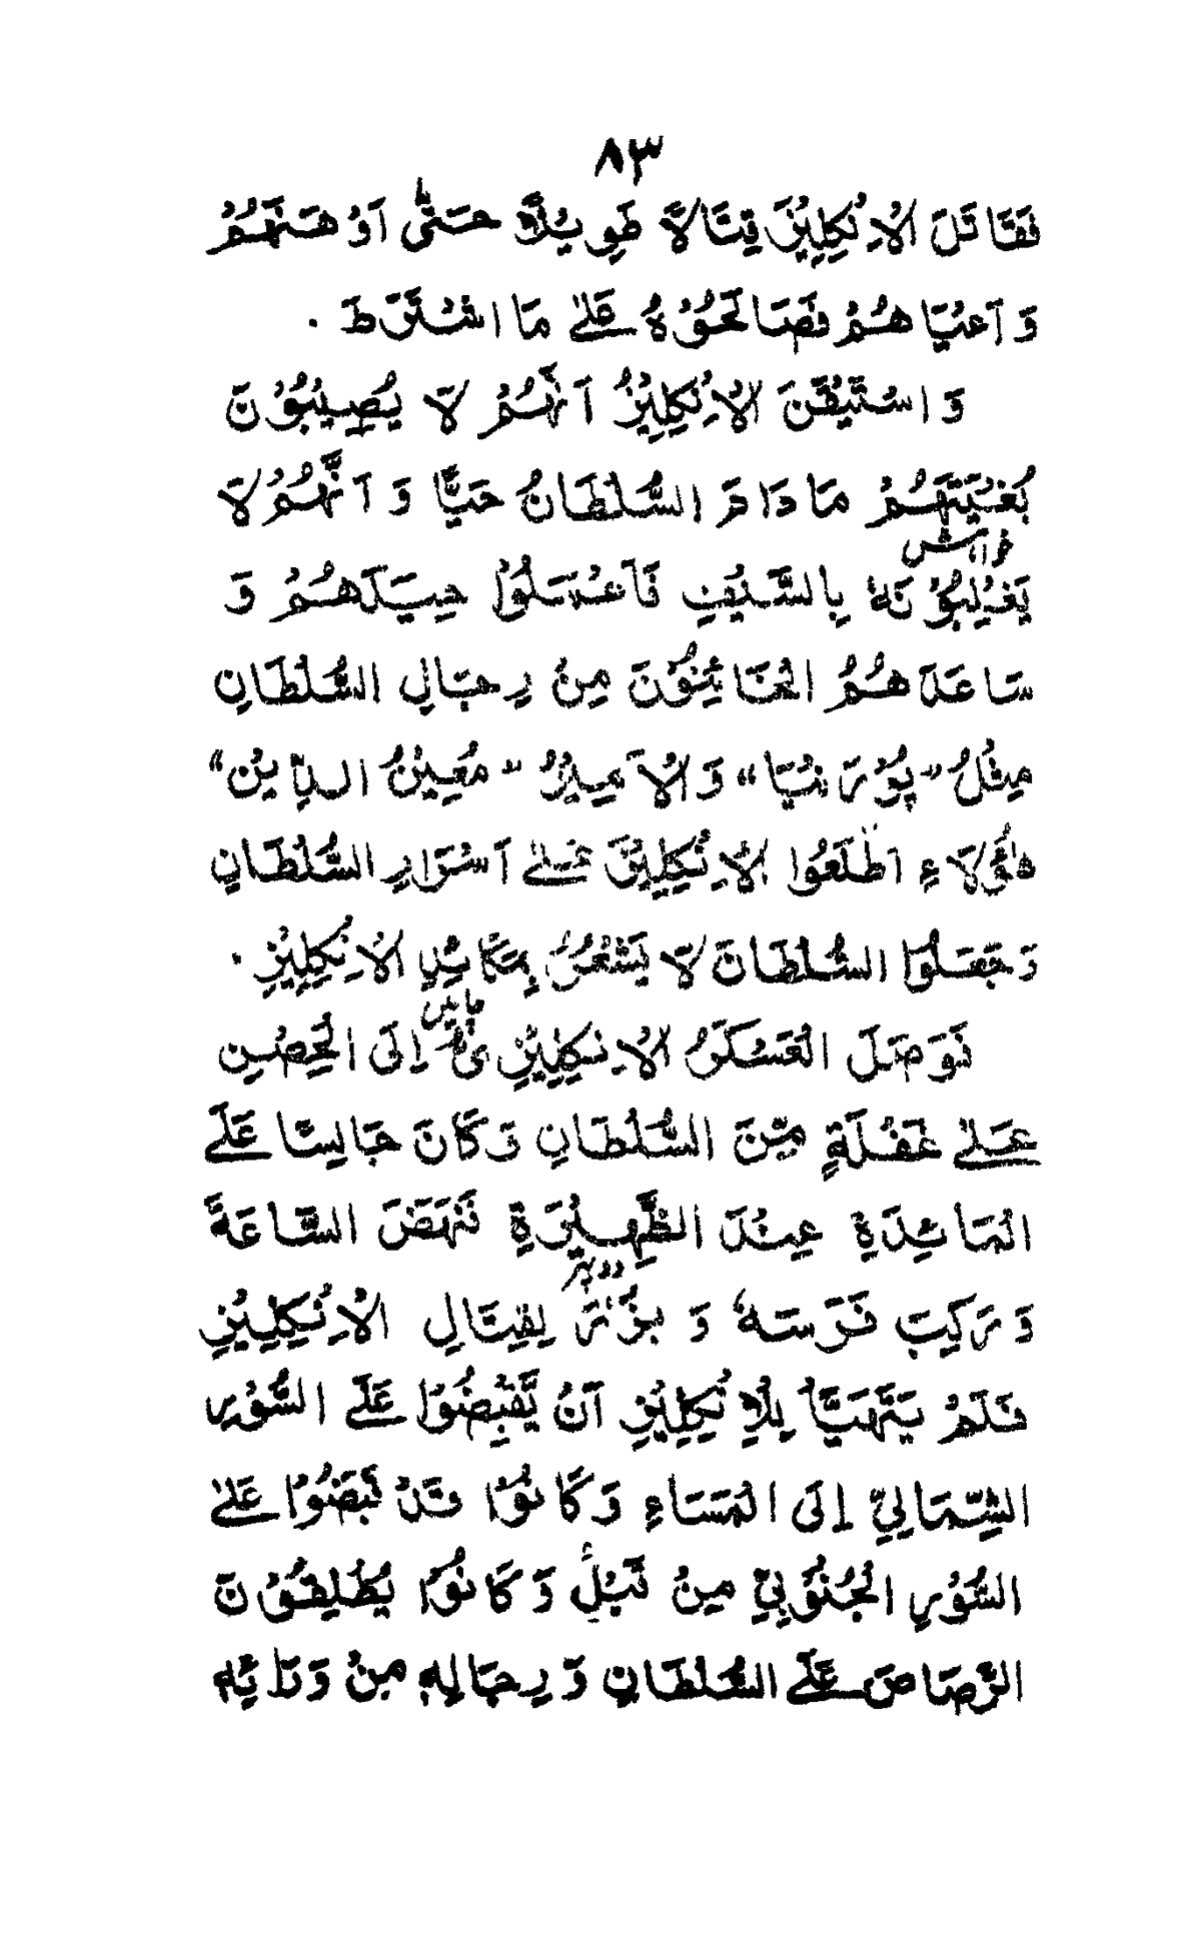 ٨٣
فَقَاتَلَ الْاِنْكِلِيْزَ قِتَالًا طَوِيْلًا حَتّٰى اَوْهَنَهُمْ
وَ اَعْيَاهُمْ فَصَالَحُوْهُ عَلٰى مَا اشْتَرَطَ .
وَ اسْتَيْقَنَ الْاِنْكِلِيْزُ اَنَّهُمْ لَا يُصِيْبُوْنَ
بُغْيَتَهُمْ مَا دَامَ السُّلْطَانُ حَيًّا وَ اَنَّهُمْ لَا
خواہش
يَغْلِبُوْنَهٗ بِالسَّيْفِ فَاَعْمَلُوْا حِيَلَهُمْ وَ
سَاعَدَهُمُ الْخَائِنُوْنَ مِنْ رِجَالِ السُّلْطَانِ
مِثْلُ "پُوْرَنْيَا" وَالْاَمِيْرُ "مُعِيْنُ الدِّيْن"
هٰؤُلَاءِ اَطْلَعُوا الْاِنْكِلِيْزَ عَلٰى اَسْرَارِ السُّلْطَانِ
وَجَعَلُوا السُّلْطَانَ لَا يَشْعُرُ بِمَكَائِدِ الْاِنْكِلِيْزِ .
چالیں
فَوَصَلَ الْعَسْكَرُ الْاِنْكِلِيْزِيُّ اِلَى الْحِصْنِ
عَلٰى غَفْلَةٍ مِّنَ السُّلْطَانِ وَكَانَ جَالِسًا عَلَى
الْمَائِدَةِ عِنْدَ الظَّهِيْرَةِ فَنَهَضَ السَّاعَةَ
دوپہر
وَرَكِبَ فَرَسَهٗ وَ بَرَزَ لِقِتَالِ الْاِنْكِلِيْزِ
فَلَمْ يَتَهَيَّأْ لِلْاِنْكِلِيْزِ اَنْ يَّقْبِضُوْا عَلَى السُّوْرِ
الشِّمَالِيِّ اِلَى الْمَسَاءِ وَكَانُوْا قَدْ قَبَضُوْا عَلَى
السُّوْرِ الْجُنُوْبِيِّ مِنْ قَبْلُ وَكَانُوْا يُطْلِقُوْنَ
الرَّصَاصَ عَلَى السُّلْطَانِ وَرِجَالِهٖ مِنْ وَرَائِهٖ